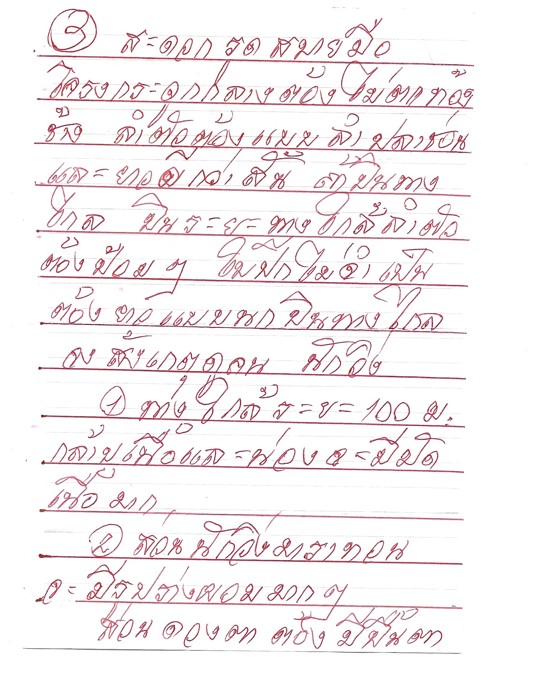 ③ สะดวก รด สบายมือ
โครงกระดูกกลางต้องไม่ตกท้อง
ช้าง ลำตัวต้องแบบลำปลาช่อน
และยาวดีกว่าสั้น ถ้าบินทาง
ไกล บินระยะทางใกล้ลำตัว
ต้องป้อมๆ ใบปีกไม่จำเป็น
ต้องยาวแบบนกบินทางไกล
จงสังเกตดูคน นักวิ่ง
① ทางใกล้ ระยะ 100 ม.
กล้ามเนื้อและน่องจะมีมัด
เนื้อมาก
② ส่วนนักวิ่งมาราทอน
จะมีรูปร่างผอมมากๆ
ส่วนดวงตา ต้องมีพื้นตา